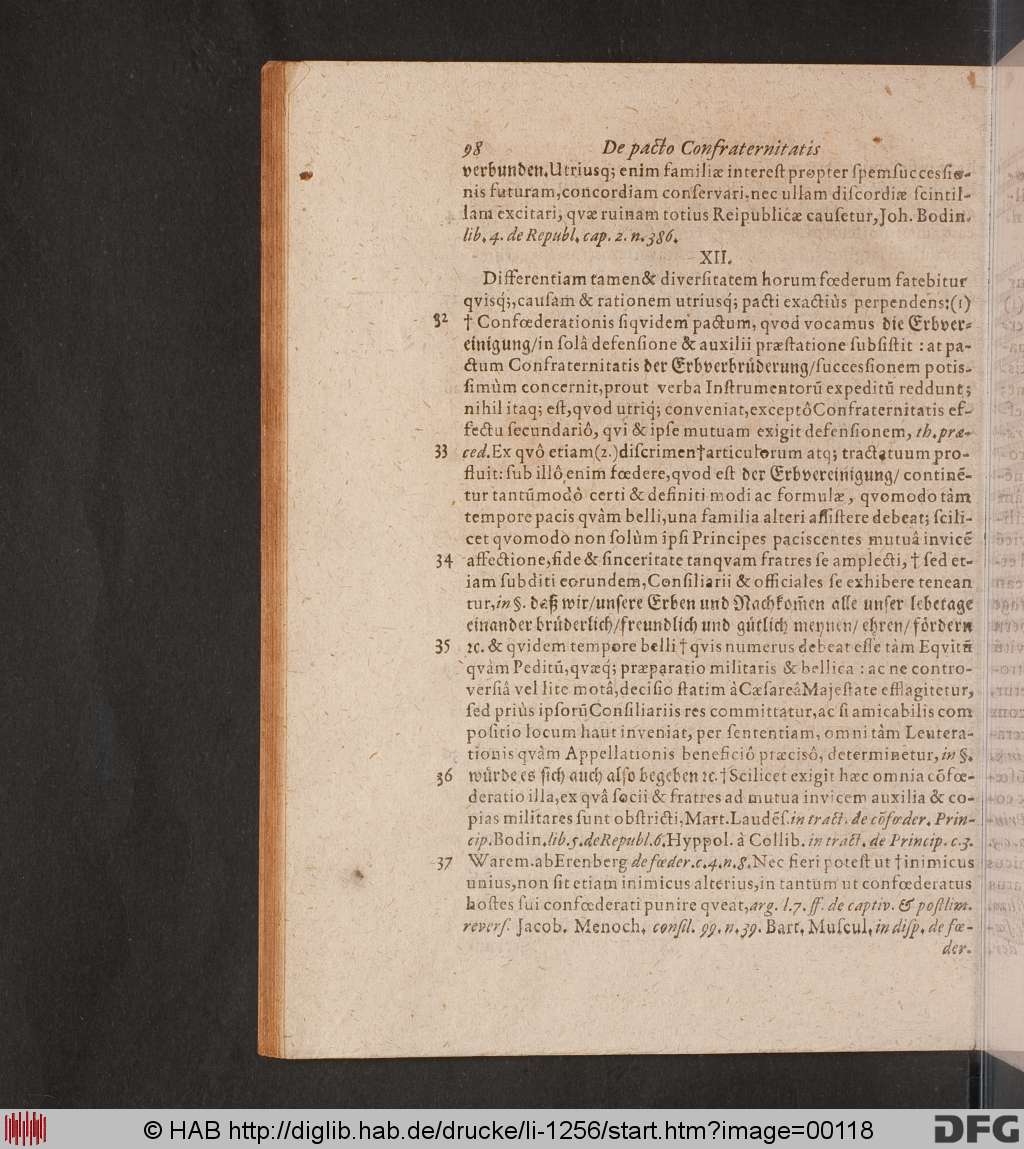 98 De pacto Confraternitatis
verbunden. Utriusq; enim familiæ interest propter spem successio-
nis futuram, concordiam conservari, nec ullam discordiæ scintil-
lam excitari, qvæ ruinam totius Reipublicæ causetur, Joh. Bodin.
lib. 4. de Republ. cap. 2. n. 386.
XII.
Differentiam tamen & diversitatem horum fœderum fatebitur
qvisq;, causam & rationem utriusq; pacti exactiùs perpendens: (1)
32 † Confœderationis siqvidem pactum, qvod vocamus die Erbver=
einigung/ in solâ defensione & auxilii præstatione subsistit : at pa-
ctum Confraternitatis der Erbverbrüderung/ successionem potis-
simùm concernit, prout verba Instrumentorũ expeditũ reddunt;
nihil itaq; est, qvod utriq; conveniat, exceptô Confraternitatis ef-
fectu secundariô, qvi & ipse mutuam exigit defensionem, th. præ-
33 ced. Ex qvô etiam (2.) discrimen † articulorum atq; tractatuum pro-
fluit: sub illô enim fœdere, qvod est der Erbvereinigung/ continẽ-
tur tantũmodò certi & definiti modi ac formulæ, qvomodo tàm
tempore pacis qvàm belli, una familia alteri assistere debeat; scili-
cet qvomodo non solùm ipsi Principes paciscentes mutuâ invicẽ
34 affectione, fide & sinceritate tanqvam fratres se amplecti, † sed et-
iam subditi eorundem, Consiliarii & officiales se exhibere tenean
tur, in §. daß wir/ unsere Erben und Nachkom̃en alle unser lebetage
einander brüderlich/ freundlich und gütlich meynen/ ehren/ fördern
35 ꝛc. & qvidem tempore belli † qvis numerus debeat esse tàm Eqvitũ
qvàm Peditũ, qvæq; præparatio militaris & bellica : ac ne contro-
versiâ vel lite motâ, decisio statim à Cæsareâ Majestate efflagitetur,
sed priùs ipsorũ Consiliariis res committatur, ac si amicabilis com
positio locum haut inveniat, per sententiam, omni tàm Leutera-
tionis qvàm Appellationis beneficiô præcisô, determinetur, in §.
36 würde es sich auch also begeben ꝛc. † Scilicet exigit hæc omnia cõfœ-
deratio illa, ex qvâ socii & fratres ad mutua invicem auxilia & co-
pias militares sunt obstricti, Mart. Laudẽs. in tract. de cõfœder. Prin-
cip. Bodin. lib. 5. de Republ. 6. Hyppol. à Collib. in tract. de Princip. c. 3.
37 Warem. ab Erenberg de fœder. c. 4. n. 8. Nec fieri potest ut † inimicus
unius, non sit etiam inimicus alterius, in tantum ut confœderatus
hostes sui confœderati punire qveat, arg. l. 7. ff. de captiv. & postlim.
revers. Jacob. Menoch. consil. 99. n. 39. Bart. Muscul. in disp. de fœ-
der.
© HAB http://diglib.hab.de/drucke/li-1256/start.htm?image=00118
DFG